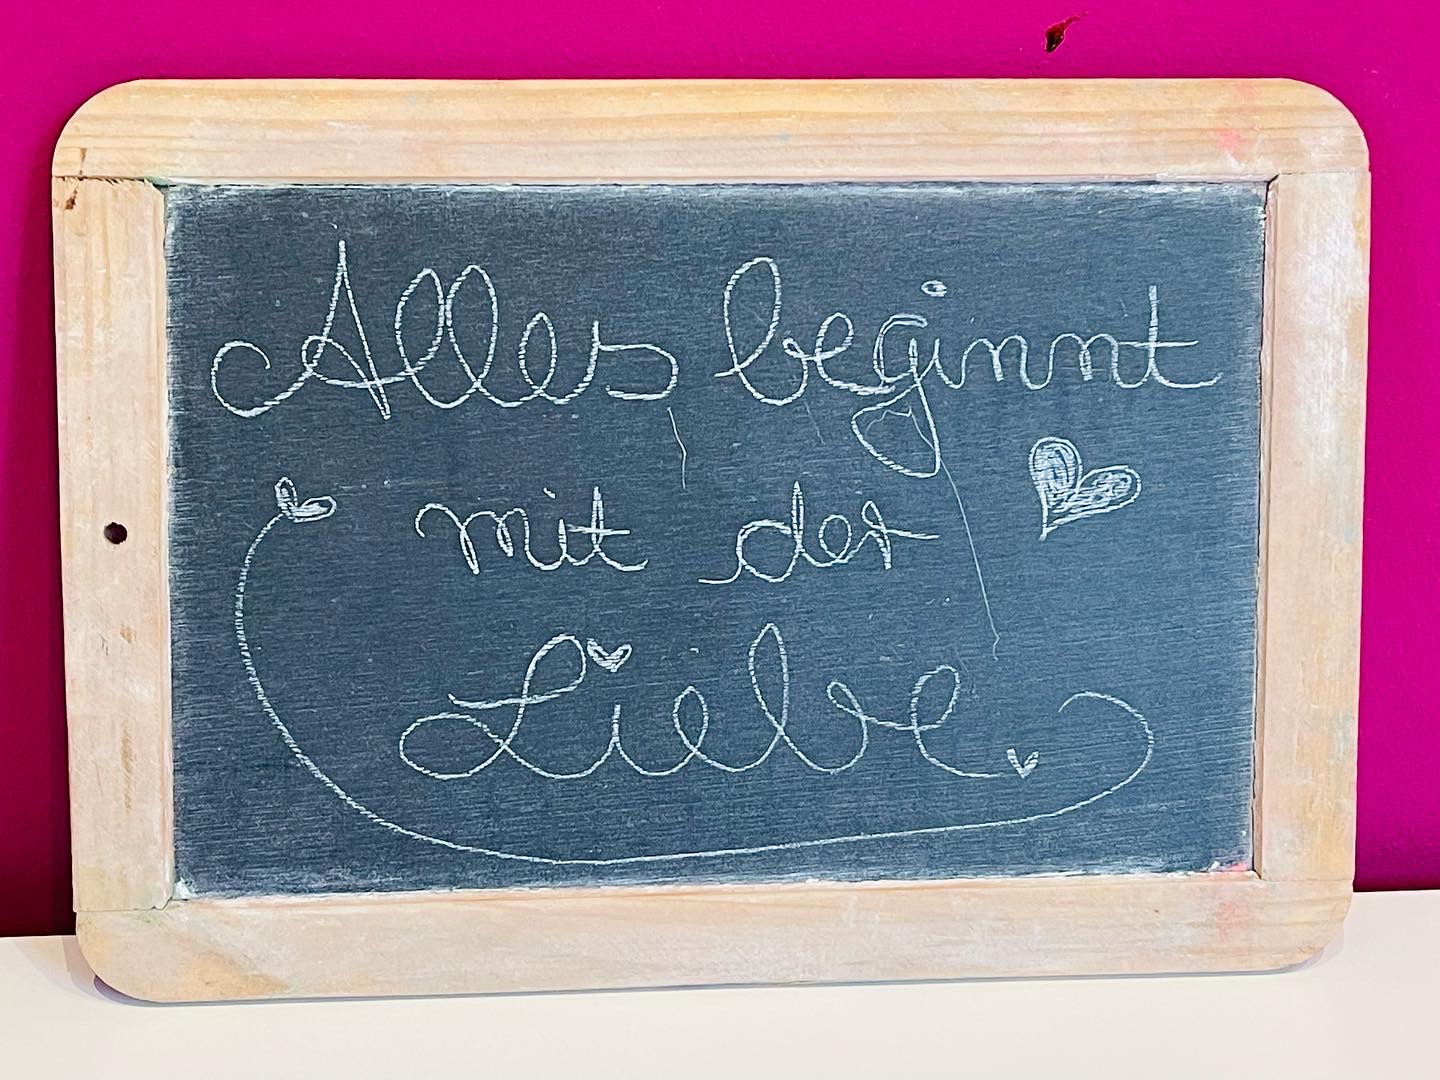 Alles beginnt
mit der
Liebe